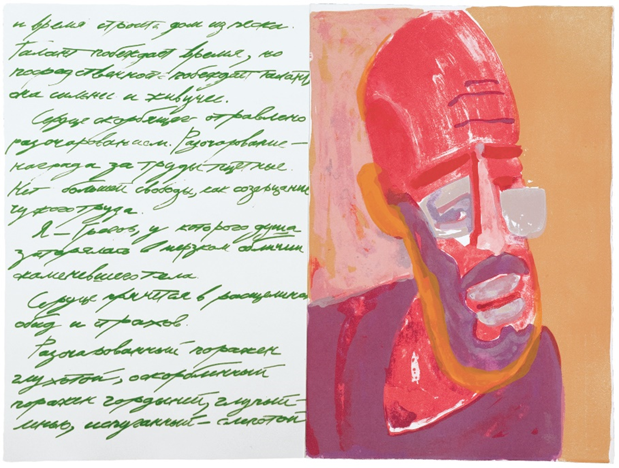 и время строить дом из песка.
Талант побеждает время, но
посредственность побеждает талант,
она сильнее и живучее.
Сердце скорбящее отравлено
разочарованием. Разочарование –
награда за труды тщетные.
Нет большей свободы, как созерцание
чужого труда.
Я – , у которого душа
затерялась в мерзком обличии
окаменевшего тела
Сердце прячется в расщелинах
обид и страхов.
Разочарованный поражен
глухотой, оскорбленный
поражен гордыней, глупый –
ленью, испуганный – слепотой